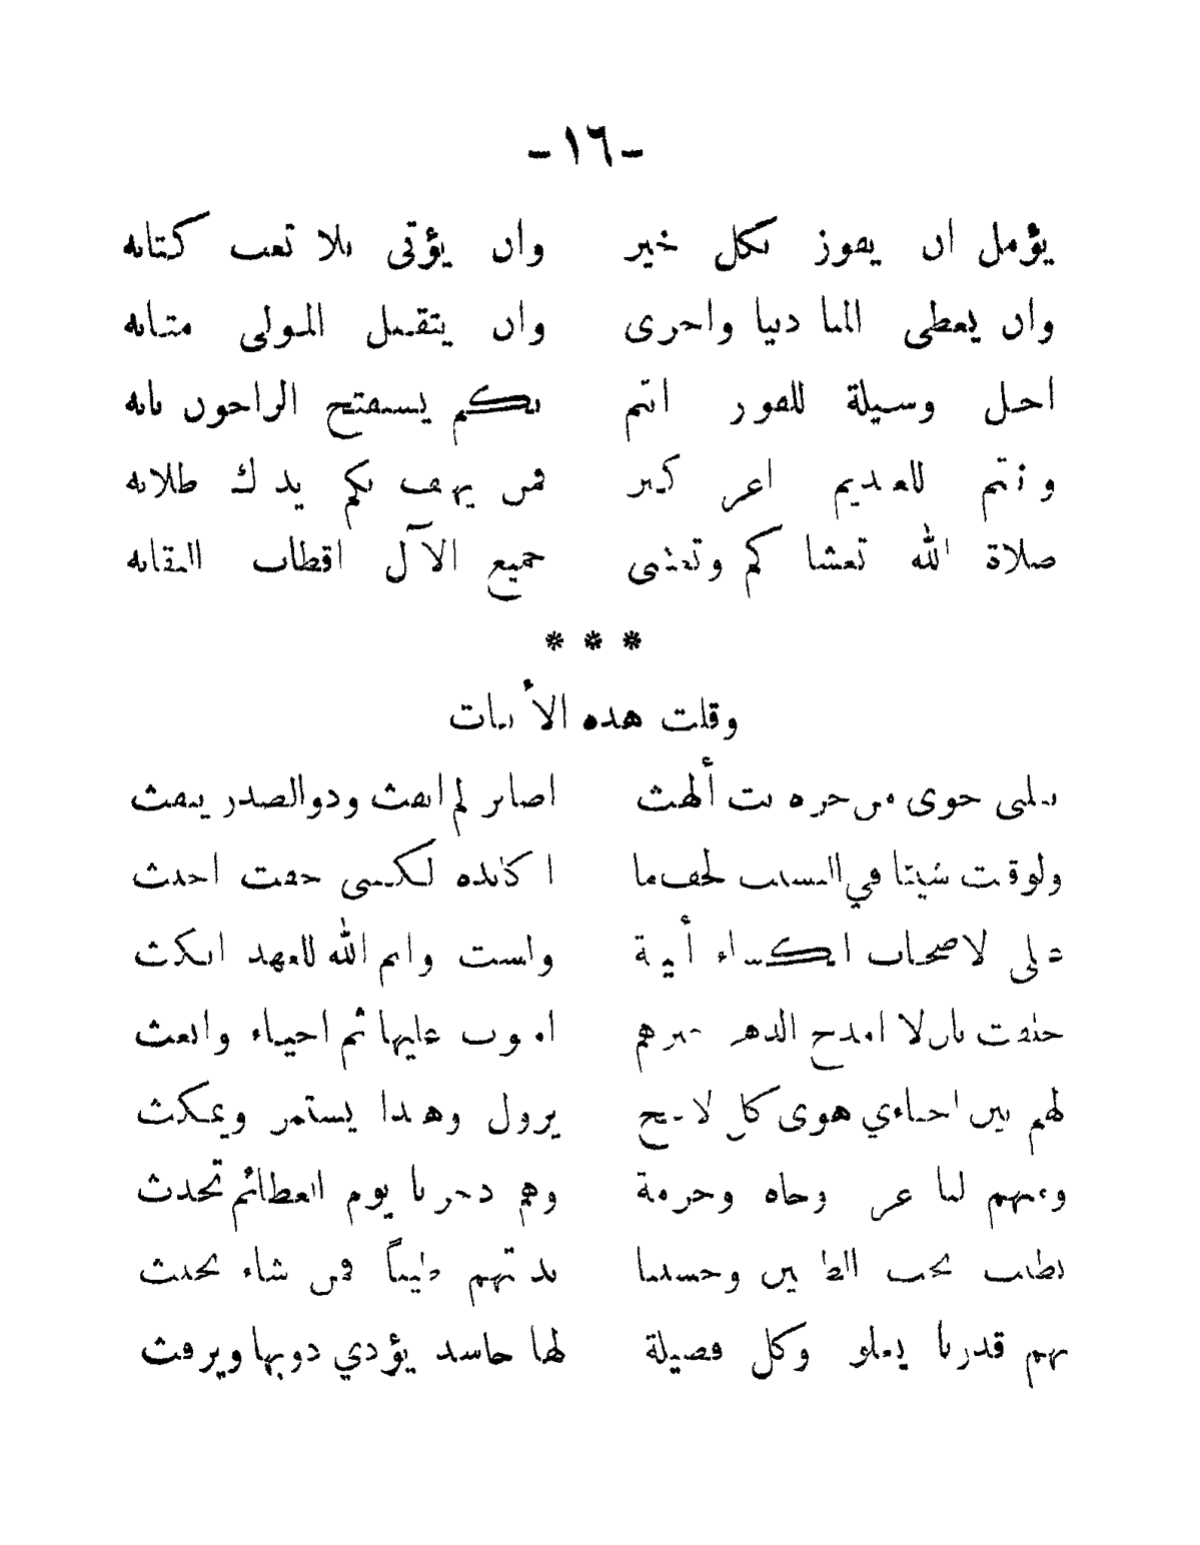 -١٦-
يؤمل ان يفوز بكل خير وان يؤتى بلا تعب كتابه
وان يعطى المنا دنيا واخرى وان يتقبل المولى متابه
اجل وسيلة للفوز انتم بكم يستفتح الراجون بابه
وانتم للعديم اعز كنز فمن يهتف بكم يدرك طلابه
صلاة الله تغشاكم وتغشى جميع الآل اقطاب النقابه
* * *
وقلت هذه الأبيات
بقلبي جوى من حره بت ألهث اصابر لم انفث وذو الصدر ينفث
ولو قمت شيئا في السبب لخف ما اكابده لكنني خفت احنث
علي لاصحاب الكساء ألية ولست وايم الله للعهد انكث
حلفت بان لا امدح الدهر غيرهم اموت عليها ثم احياء وابعث
لهم بين احناءي هوى كل لائح يزول وهذا يستمر ويمكث
ومنهم لنا عز وجاه وحرمة وهم ذخرنا يوم العظائم تحدث
نطيب بحب الطيبين وحسبنا بذتهم طيباً فمن شاء يخبث
بهم قدرنا يعلو وكل فضيلة لها حاسد يؤذي ذويها ويرفث